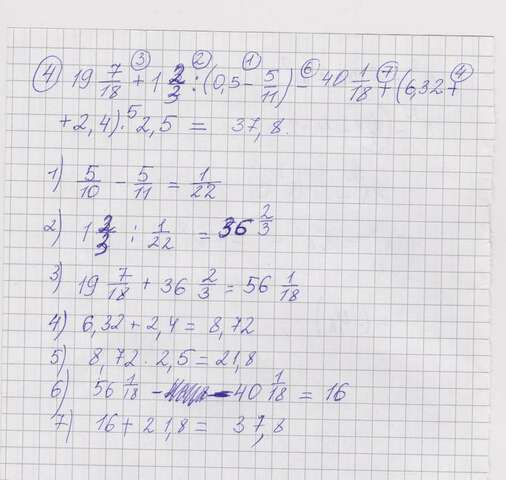 ④ 19 7/18 + 1 2/3 : (0,5 - 5/11) - 40 1/18 + (6,32 +
③ ② ① ⑥ ⑦ ④
+ 2,4) ·⁵ 2,5 = 37,8.
1) 5/10 - 5/11 = 1/22
2) 1 2/3 : 1/22 = 36 2/3
3) 19 7/18 + 36 2/3 = 56 1/18
4) 6,32 + 2,4 = 8,72
5) 8,72 · 2,5 = 21,8
6) 56 1/18 - 40 1/18 = 16
7) 16 + 21,8 = 37,8